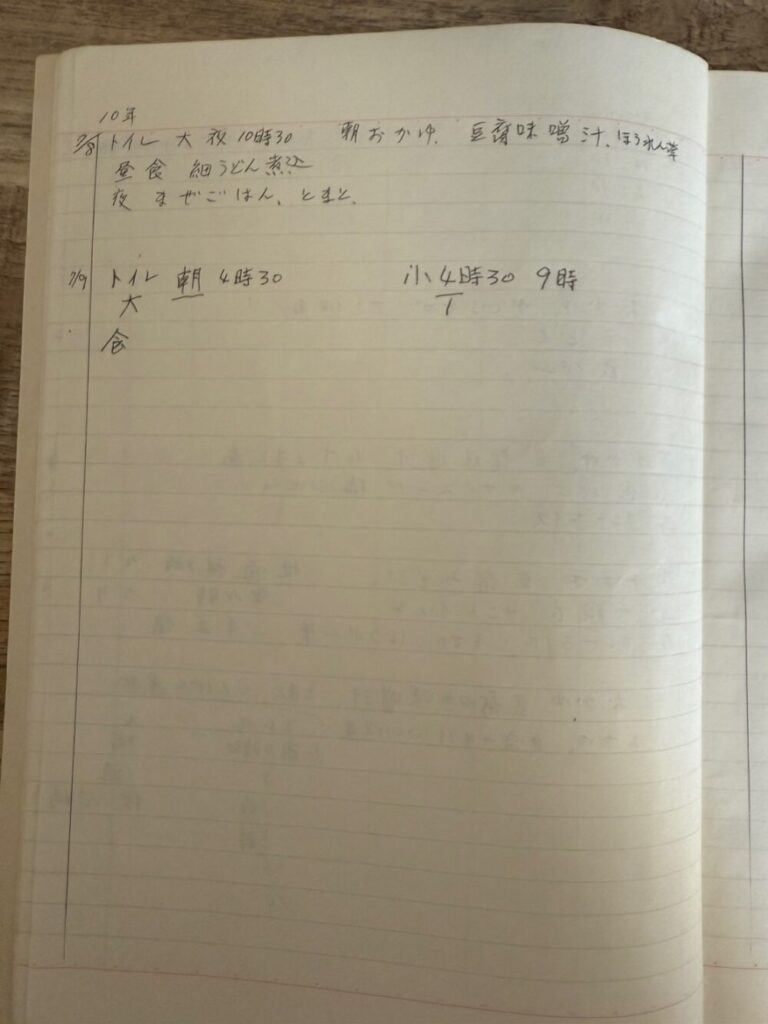 10年
7/8 トイレ 大 夜 10時30 朝おかゆ、豆腐味噌汁、ほうれん草
昼食 細うどん煮込
夜 まぜごはん、とまと、
7/9 トイレ 朝 4時30 小 4時30 9時
大
食